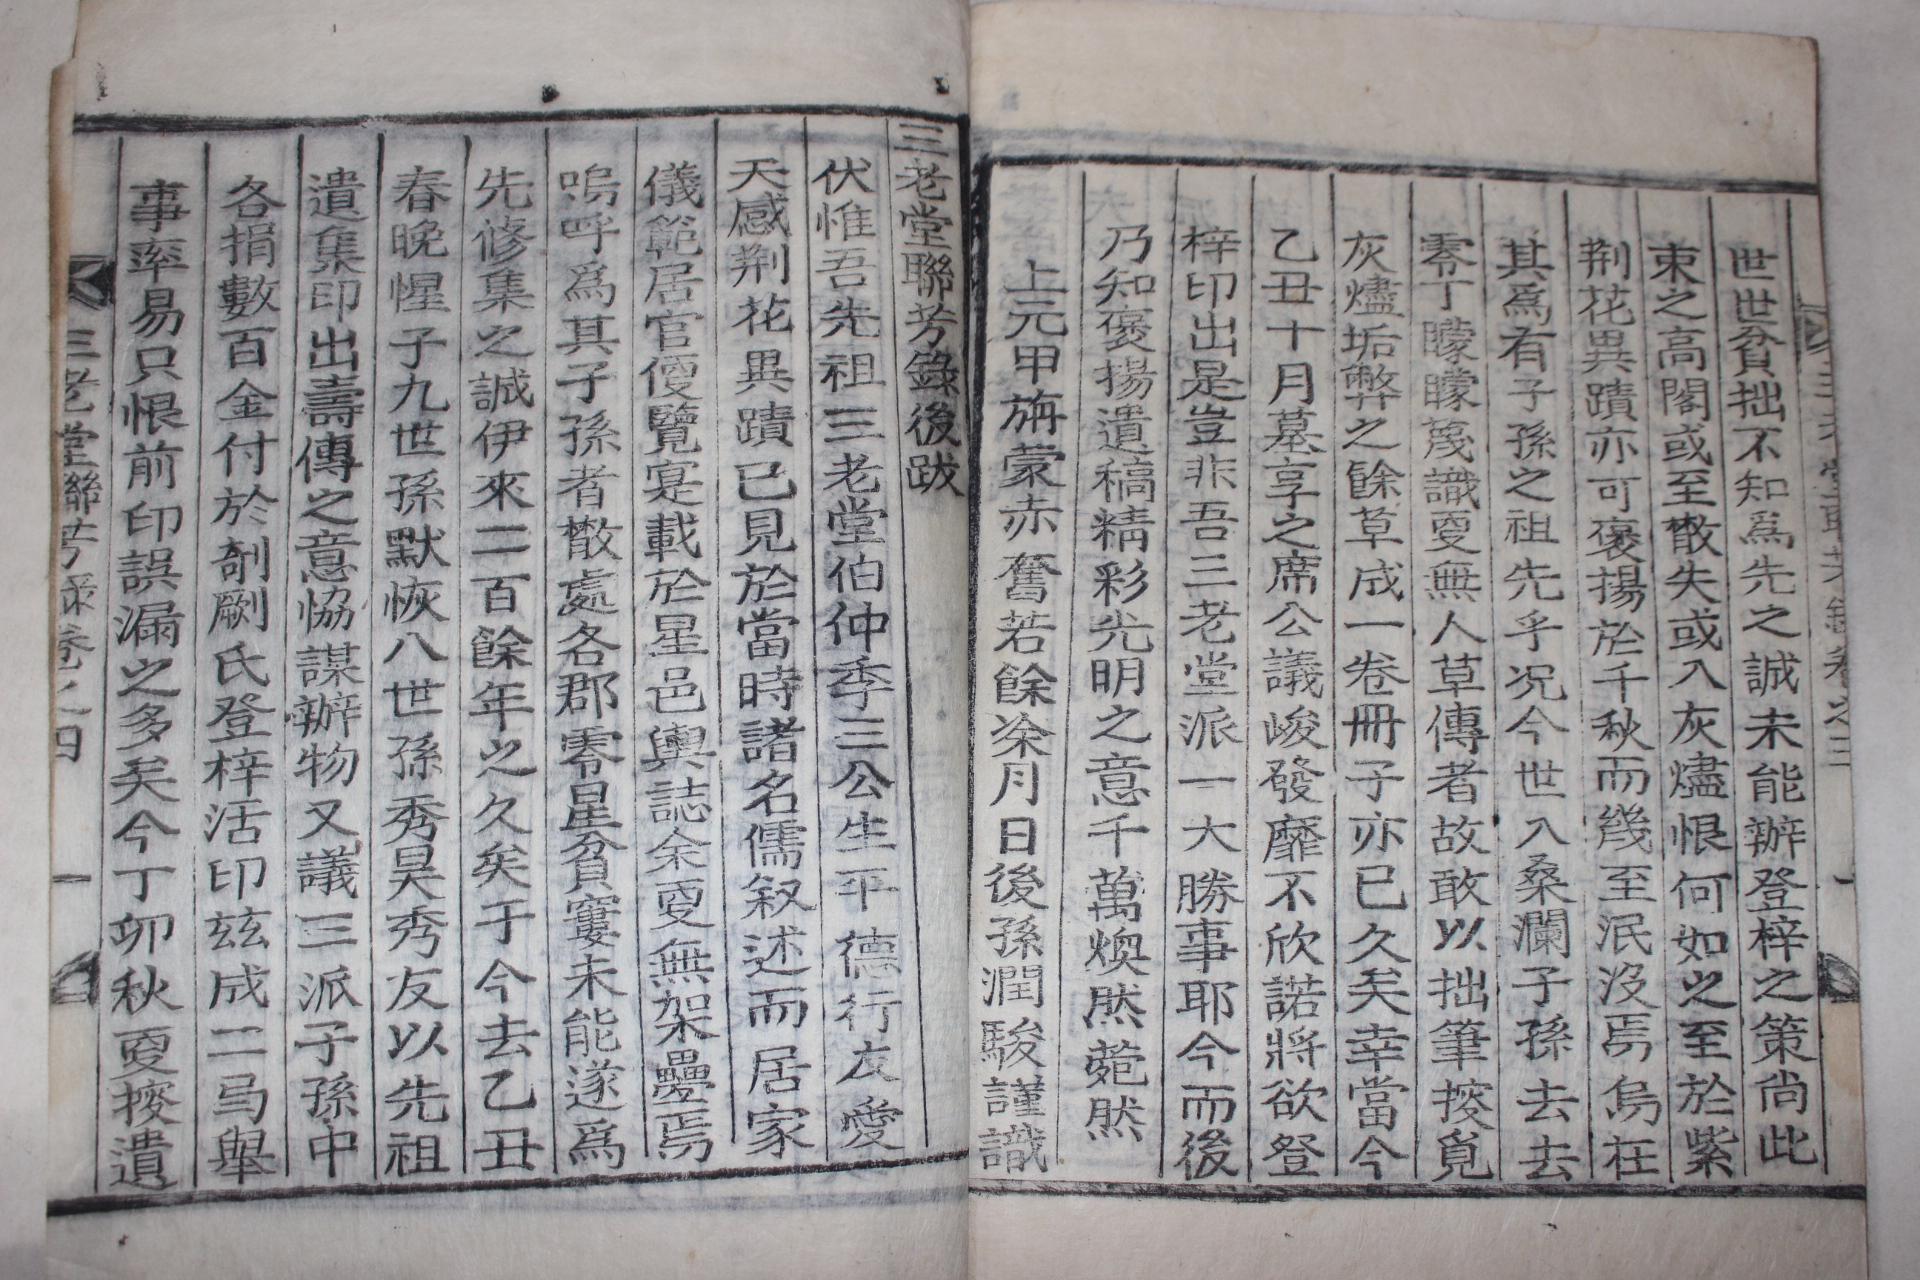 世世貧拙不知爲先之誠未能辦登梓之策尚此
束之高閣或至散失或入灰燼恨何如之至於紫
荆花異蹟亦可褒揚於千秋而幾至泯沒焉烏在
其爲有子孫之祖先乎况今世入桑瀾子孫去去
零丁矇矇蔑識更無人草傳者故敢以拙筆搜覓
灰燼垢弊之餘草成一卷冊子亦已久矣幸當今
乙丑十月墓享之席公議峻發靡不欣諾將欲登
梓印出是豈非吾三老堂派一大勝事耶今而後
乃知褒揚遺稿精彩光明之意千萬煥然菀然
上元甲旃蒙赤奮若餘凃月日後孫潤駿謹識
三老堂聯芳錄後跋
伏惟吾先祖三老堂伯仲季三公生平德行友愛
天感荆花異蹟已見於當時諸名儒叙述而居家
儀範居官優覽寔載於星邑輿誌余更無架疊焉
嗚呼爲其子孫者散處各郡零星貧窶未能遂爲
先修集之誠伊來二百餘年之久矣于今去乙丑
春晚惺子九世孫默恢八世孫秀昊秀友以先祖
遺集印出壽傳之意恊謀辦物又議三派子孫中
各捐數百金付於剞劂氏登梓活印玆成二弓舉
事率易只恨前印誤漏之多矣今丁卯秋更搜遺
三老堂聯芳錄卷之四 一